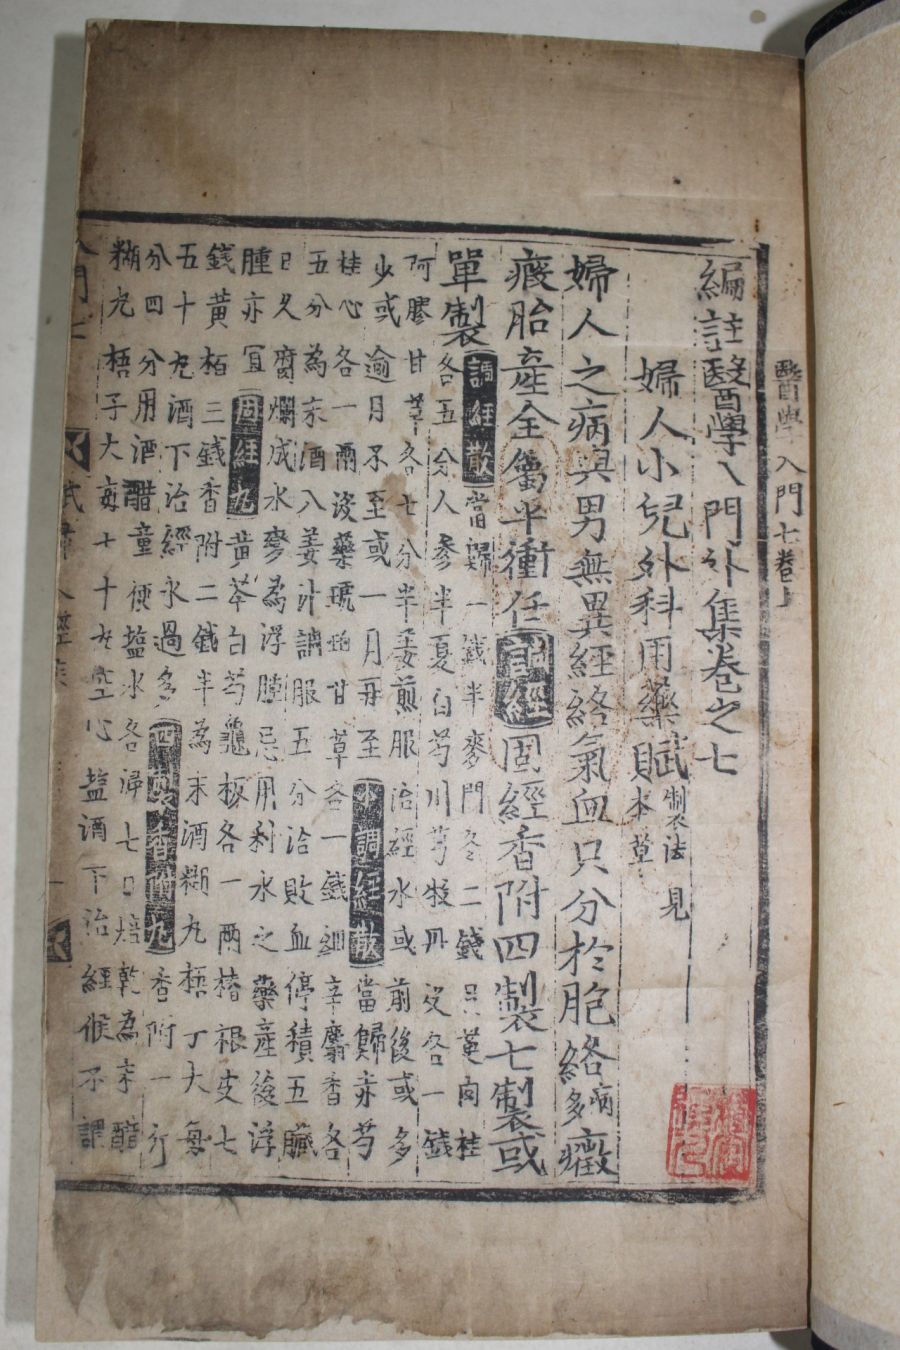 醫學入門七卷上
編註醫學入門外集卷之七
婦人小兒外科用藥賦 製法見本草
婦人之病與男無異經絡氣血只分於胞絡病多癥
瘕胎產全屬乎衝任調經固經香附四製七製或
單製 調經散 當歸一錢半麥門冬二錢吳茱肉桂
各五分人參半夏白芍川芎牧丹皮各一錢
阿膠甘草各七分半姜煎服治經水或前後或多
少或逾月不至或一月再至 小調經散 當歸赤芍
桂心各一兩沒藥琥珀甘草各一錢細辛麝香各
五分為末酒入姜汁調服五分治敗血停積五臟
日久腐爛成水變為浮腫忌用利水之藥產後浮
腫亦宜 固經丸 黃芩白芍龜板各一兩樗根皮七
錢黃栢三錢香附二錢半為末酒糊丸梧子大每
五十丸酒下治經水過多 四製香附丸 香附一斤
分四分用酒醋童便塩水各浸七日焙乾為末醋
糊丸梧子大每七十丸空心塩酒下治經候不調